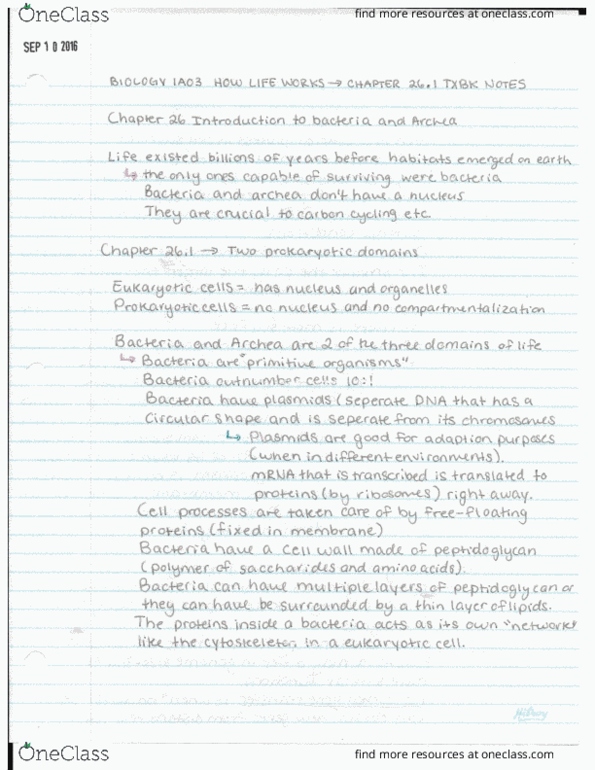 OneClass
find more resources at oneclass.com
SEP 10 2016
BIOLOGY 1A03 HOW LIFE WORKS → CHAPTER 26.1 TXBK NOTES
Chapter 26 Introduction to bacteria and Archea
Life existed billions of years before habitats emerged on earth
↳ the only ones capable of surviving were bacteria
Bacteria and archea don't have a nucleus
They are crucial to carbon cycling etc
Chapter 26.1 → Two prokaryotic domains
Eukaryotic cells = has nucleus and organelles
Prokaryotic cells = no nucleus and no compartmentalization
Bacteria and Archea are 2 of the three domains of life
↳ Bacteria are "primitive organisms"
Bacteria outnumber cells 10:1
Bacteria have plasmids (seperate DNA that has a
Circular shape and is seperate from its chromosomes
↳ Plasmids are good for adaption purposes
(when in different environments).
mRNA that is transcribed is translated to
proteins (by ribosomes) right away.
Cell processes are taken care of by free-floating
proteins (fixed in membrane)
Bacteria have a cell wall made of peptidoglycan
(polymer of saccharides and amino acids).
Bacteria can have multiple layers of peptidoglycan or
they can have be surrounded by a thin layer of lipids.
The proteins inside a bacteria acts as its own "network"
like the cytoskeleton in a eukaryotic cell.
Hilroy
OneClass
find more resources at oneclass.com